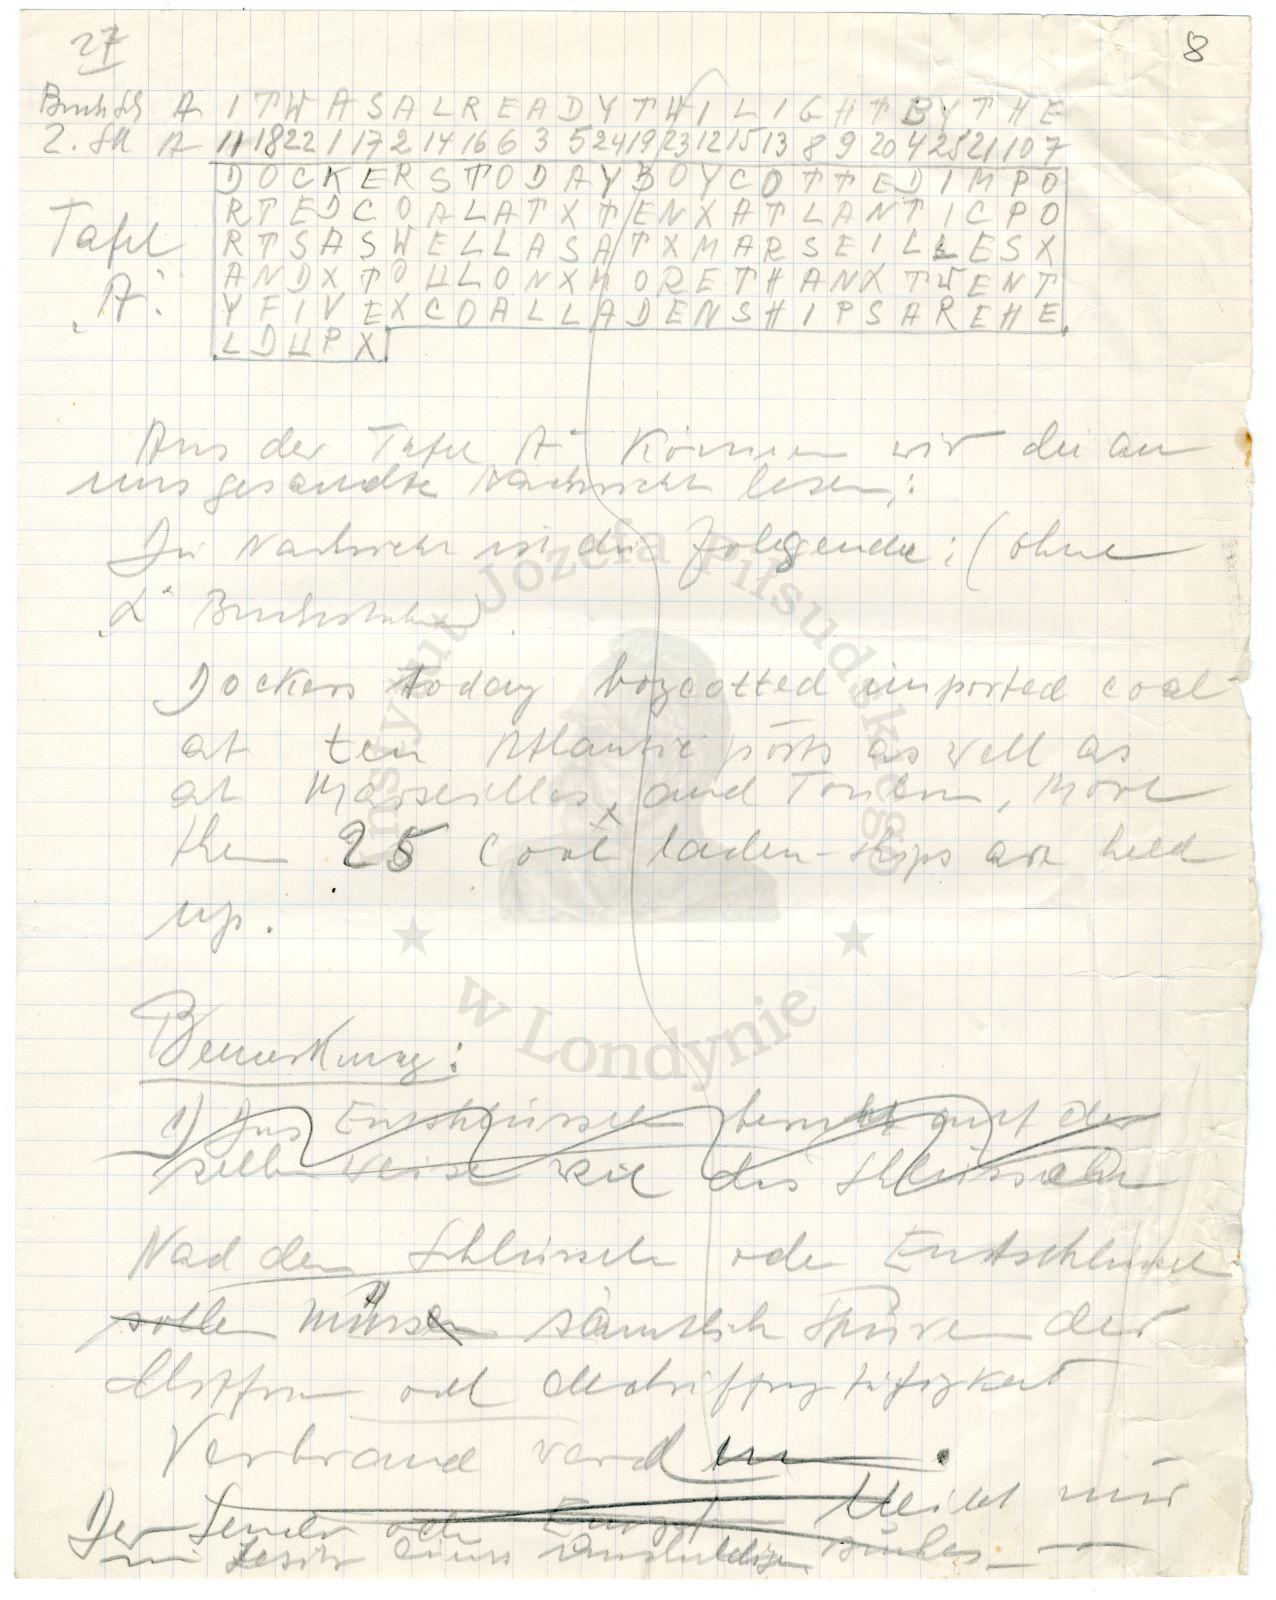 27
8
Buchsch A I T W A S A L R E A D Y T W I L I G H T B Y T H E
2. Sch A 11 18 22 1 17 2 14 16 6 3 5 24 19 23 12 15 13 8 9 20 4 25 21 10 7
D O C K E R S T O D A Y B O Y C O T T E D I M P O
R T E D C O A L A T X T E N X A T L A N T I C P O
Tafel R T S A S W E L L A S A T X M A R S E I L L E S X
„A" A N D X T O U L O N X M O R E T H A N X T W E N T
Y F I V E X C O A L L A D E N S H I P S A R E H E
L D U P X
Aus der Tafel A" Können wir die an
uns gesandte Nachricht lesen:
Die Nachricht ist die folgende: (ohne
„X" Buchstaben)
Dockers today boycotted imported coal
at ten Atlantic ports as well as
at Marseilles and Toulon, More
then 25 coal laden-ships are held
up.
Bemerkung:
1) Das Entschlüsseln beruht auf der
selben Weise wie das Schlüsseln
Nach dem Schlüsseln oder Entschlüsseln
sollen müssen sämtliche Spüren der
Chiffren und dechiffry tätigkeit
Verbrand werden.
Der Sender oder Empf bleibt nur
im Besitz eines unschuldigen Buches
Instytut Józefa Piłsudskiego
w Londynie